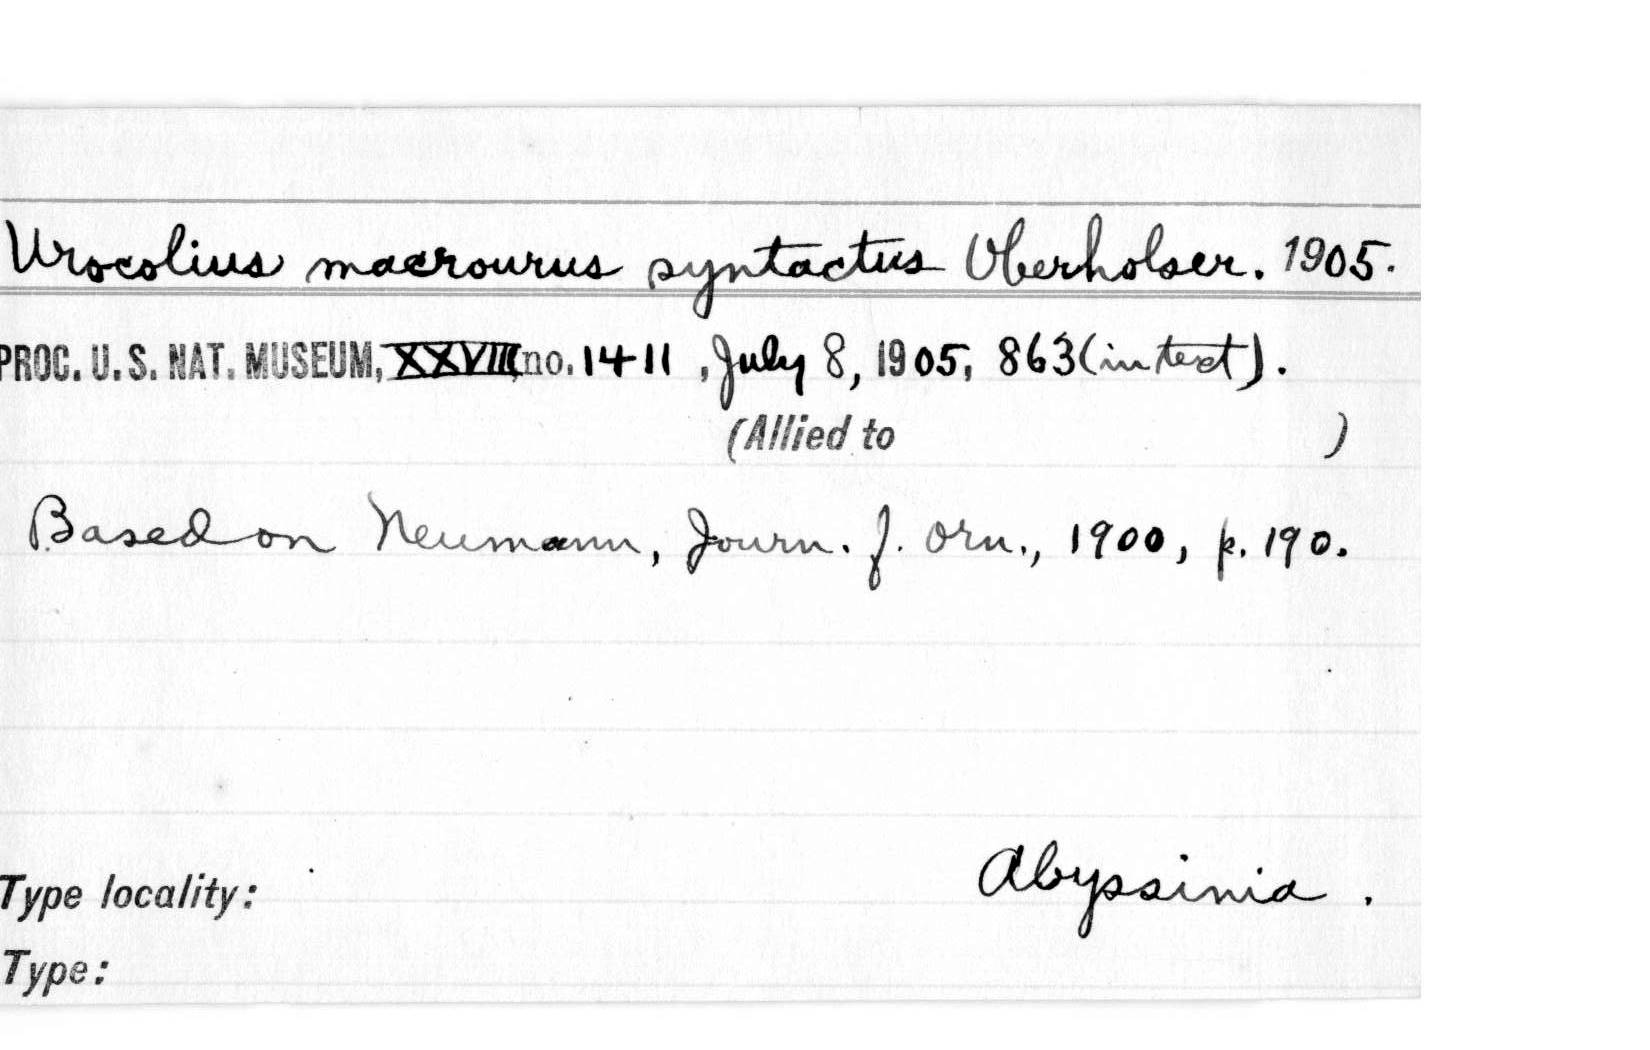 Urocolius macrourus syntactus Oberholser. 1905.
PROC. U.S. NAT. MUSEUM, XXVIII, no. 1411, July 8, 1905, 863 (in text).
(Allied to )
Based on Neumann, Journ. f. Orn., 1900, p. 190.
Abyssinia.
Type locality:
Type: